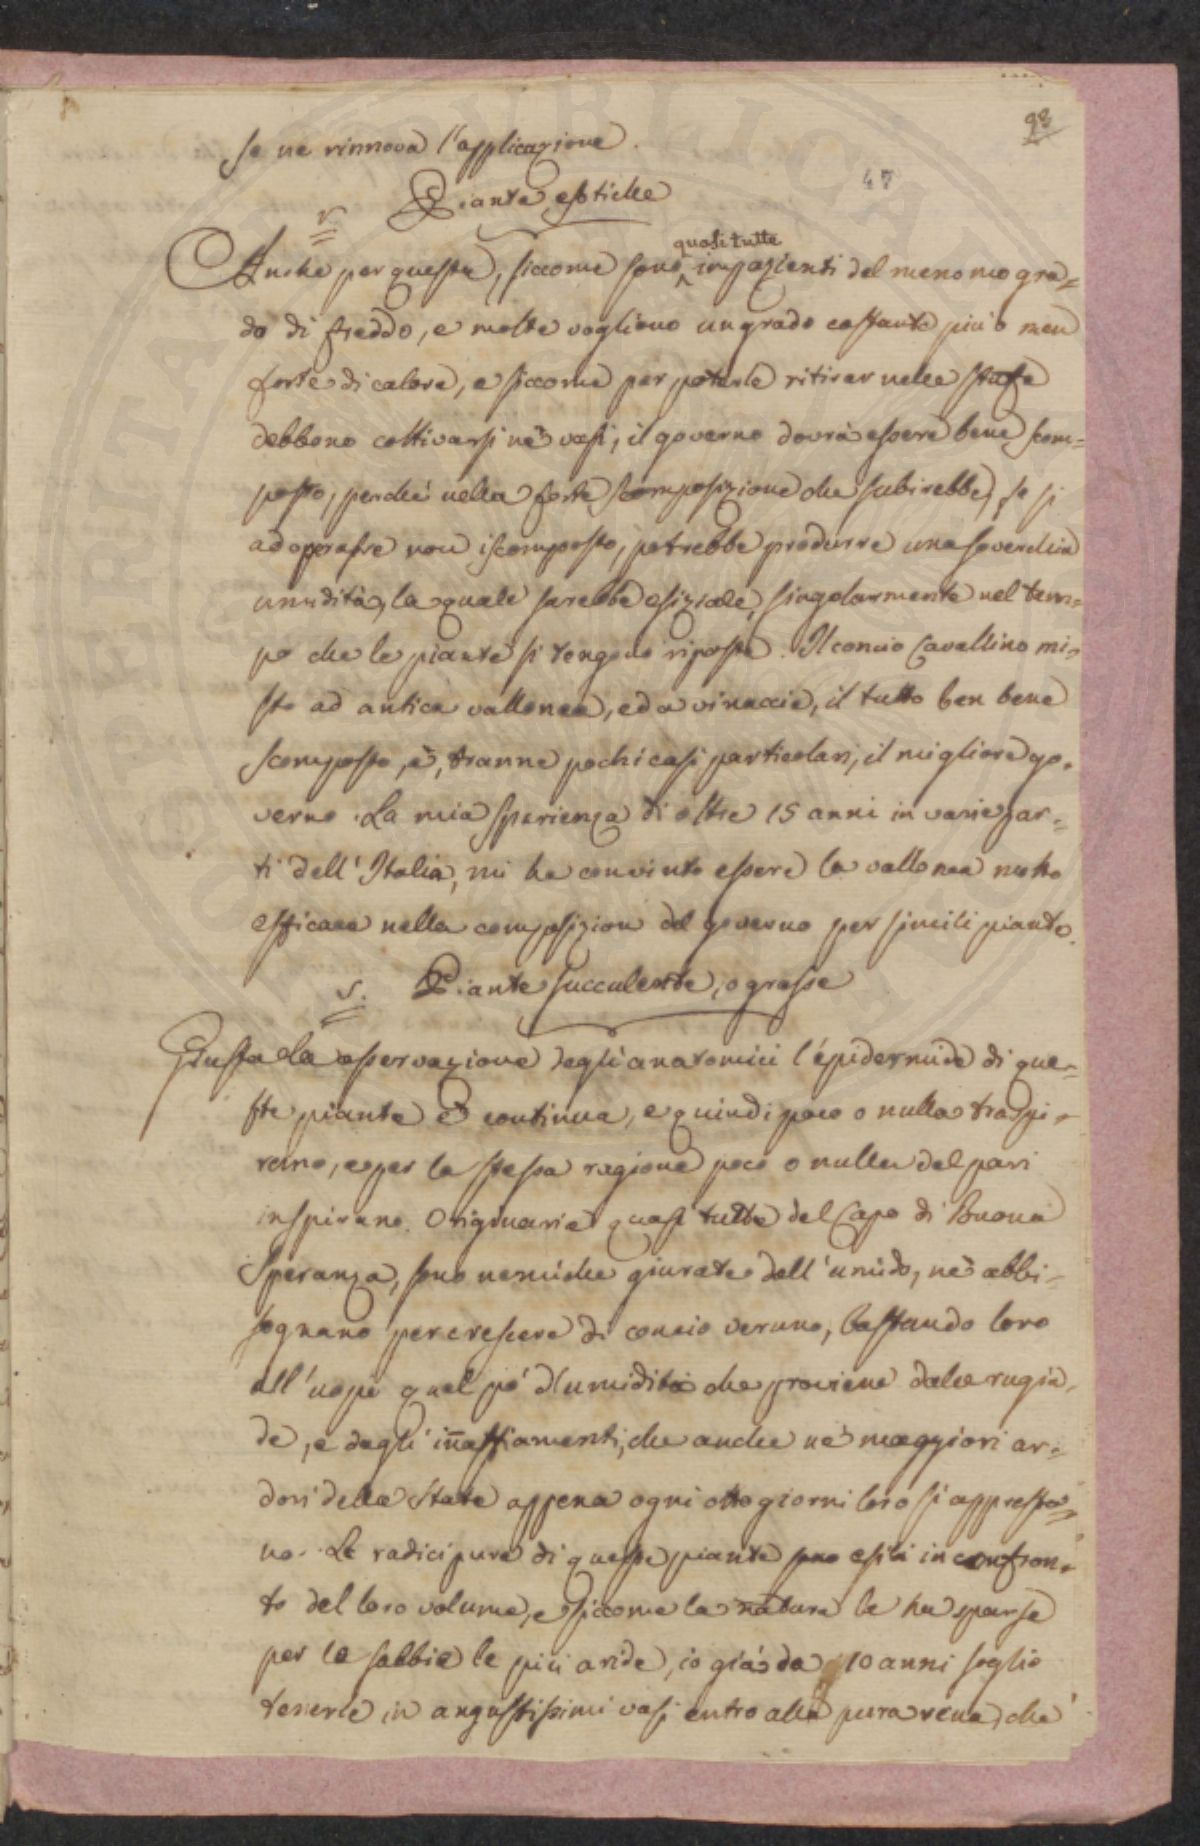 98
47
se ne rinnova l'applicazione.
Piante esotiche
Anche per queste, siccome sono quasi tutte impazienti del menomo gra=
do di freddo, e molte vogliono un grado costante più o men
forte di calore, e siccome per poterle ritirar nelle stufe
debbono coltivarsi ne' vasi, il governo dovrà essere bene scom=
posto, perchè nella forte scomposizione che subirebbe, se si
adoprasse non iscomposto, potrebbe produrre una soverchia
umidità, la quale sarebbe esiziale, singolarmente nel tem=
po che le piante si tengono riposte. Il concio Cavallino mi=
sto ad antica vallonea, ed a vinaccie, il tutto ben bene
scomposto, è, tranne pochi casi particolari, il migliore go=
verno. La mia sperienza di oltre 15 anni in varie par=
ti dell'Italia, mi ha convinto essere la vallonea molto
efficace nella composizion del governo per simili piante.
Piante succulente, o grasse
Giusta la osservazione degli anatomici l'epidermide di que=
ste piante è continua, e quindi poco o nulla traspi=
rano, e per la stessa ragione poco o nulla del pari
inspirano. Originarie quasi tutte del Capo di Buona
Speranza, sono nemiche giurate dell'umido, nè abbi=
sognano per crescere di concio veruno, bastando loro
all'uopo quel pò d'umidità che proviene dalle rugia=
de, e dagli innaffiamenti, che anche ne' maggiori ar=
dori della State appena ogni otto giorni loro si appresta=
no. Le radici pure di queste piante sono esili in confron=
to del loro volume, e siccome la natura le ha sparse
per le sabbie le più aride, io già da 10 anni soglio
tenerle in angustissimi vasi entro alla pura rena, che